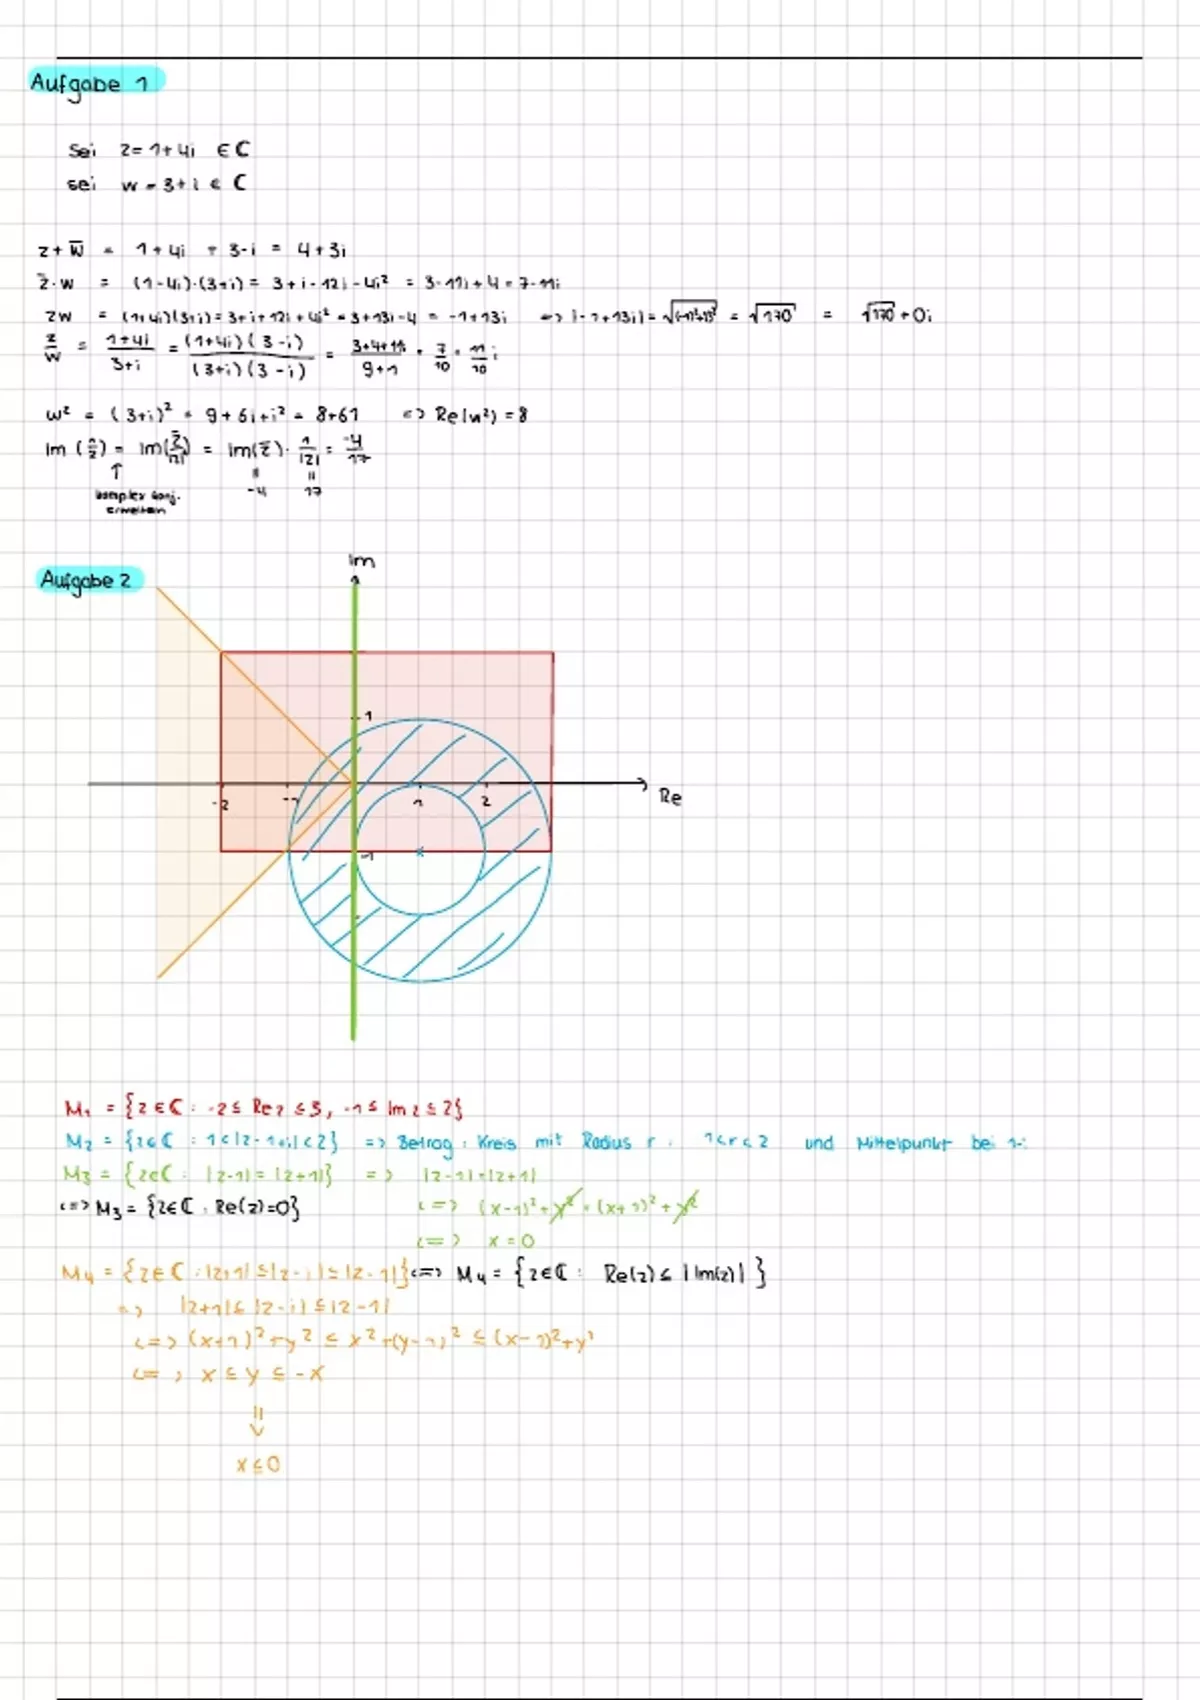 Aufgabe 1
Sei z = 1+4i ∈ ℂ
sei w = 3+i ∈ ℂ
z + w̄ = 1+4i + 3-i = 4+3i
z̄·w = (1-4i)·(3+i) = 3+i-12i-4i² = 3-11i+4 = 7-11i
zw = (1+4i)(3+i) = 3+i+12i+4i² = 3+13i-4 = -1+13i => |-1+13i| = √((-1)²+13²) = √170 = √170 + 0i
z/w = (1+4i)/(3+i) = ((1+4i)(3-i))/((3+i)(3-i)) = (3+4+11i)/(9+1) = 7/10 + 11/10 i
w² = (3+i)² = 9+6i+i² = 8+6i => Re(w²) = 8
Im(1/z) = Im(z̄/|z|) = Im(z̄)· 1/|z| = -4/17
↑ = =
komplex konj. -4 17
erweitern
Im
Aufgabe 2
1
-2 -1 1 2 Re
-1
M₁ = {z∈ℂ : -2 ≤ Re z ≤ 3, -1 ≤ Im z ≤ 2}
M₂ = {z∈ℂ : 1<|z-1+i|<2} => Betrag: Kreis mit Radius r: 1<r<2 und Mittelpunkt bei 1-i
M₃ = {z∈ℂ : |z-1| = |z+1|} => |z-1| = |z+1|
<=> M₃ = {z∈ℂ : Re(z)=0} <=> (x-1)² + y² = (x+1)² + y²
<=> x = 0
M₄ = {z∈ℂ : |z+1| ≤ |z-i| ≤ |z-1|} <=> M₄ = {z∈ℂ : Re(z) ≤ |Im(z)| }
=> |z+1| ≤ |z-i| ≤ |z-1|
<=> (x+1)² + y² ≤ x² + (y-1)² ≤ (x-1)² + y²
<=> x ≤ y ≤ -x
⇓
x ≤ 0